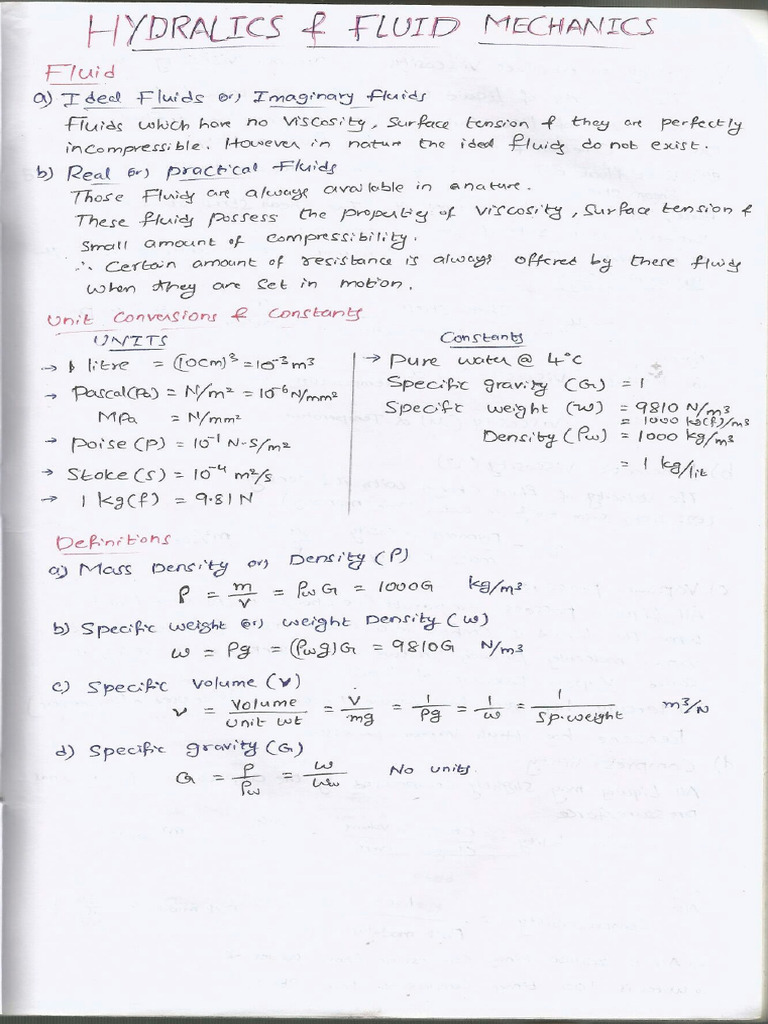 HYDRALICS & FLUID MECHANICS
Fluid
a) Ideal Fluids (or) Imaginary fluids
Fluids which have no viscosity, surface tension & they are perfectly
incompressible. However in nature the ideal fluids do not exist.
b) Real (or) practical Fluids
Those Fluids are always available in a nature.
These fluids possess the properties of viscosity, surface tension &
small amount of compressibility.
∴ Certain amount of resistance is always offered by these fluids
when they are set in motion.
Unit Conversions & Constants
UNITS
→ 1 litre = (10cm)³ = 10⁻³ m³
→ Pascal(Pa) = N/m² = 10⁻⁶ N/mm²
MPa = N/mm²
→ Poise (P) = 10⁻¹ N-S/m²
→ Stoke (S) = 10⁻⁴ m²/s
→ 1 kg(f) = 9.81 N
Constants
→ Pure water @ 4°C
Specific gravity (G) = 1
Specific weight (w) = 9810 N/m³
= 1000 kg(f)/m³
Density (ρw) = 1000 kg/m³
= 1 kg/lit
Definitions
a) Mass Density (or) Density (ρ)
ρ = m/v = ρw G = 1000G kg/m³
b) Specific weight (or) weight Density (w)
w = ρg = (ρw g)G = 9810G N/m³
c) Specific volume (v)
v = volume/unit wt = v/mg = 1/ρg = 1/w = 1/sp.weight m³/N
d) Specific gravity (G)
G = ρ/ρw = w/ww No units.